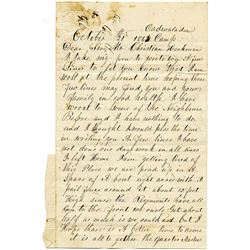 Cadwalader
October 21 1862 Camp
Dear John Mr Christian
I take my pen to write you a few
lines to let you know that I am
well at the present time hoping these
few lines may find you and your
family in good health. I have
wrote to some of the Neighbours
Before and I have nothing to do
and I thought I would pass the time
in writing you a few lines I have
not done one days work in all since
I left Home I am getting tired of
this Place we are pend up in a
space of about eight acres with a
rail fence around it about 10 feet
high since the Regiments have all
but to the front not early but about
half as much as we could eat but I
hope there is a better time to come
it is all to gether the quarter Master